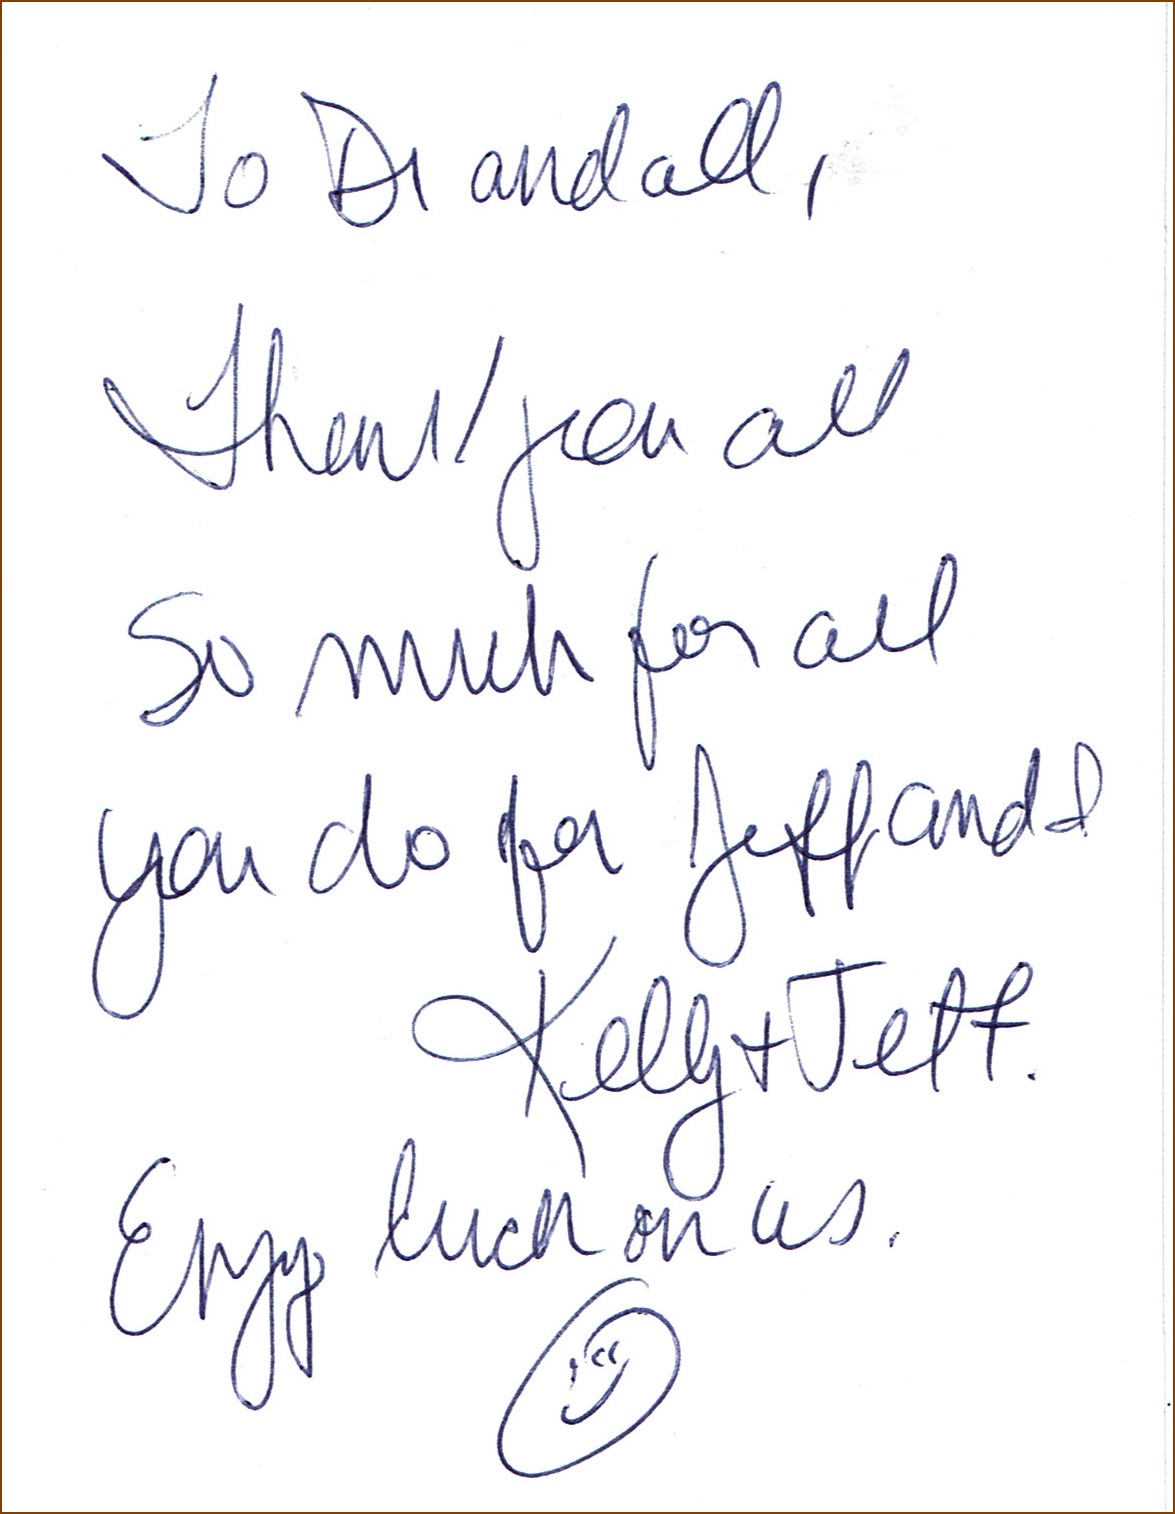 To Dr and all,
Thank you all
So much for all
you do for Jeff and I
Kelly + Jeff.
Enjoy lunch on us.